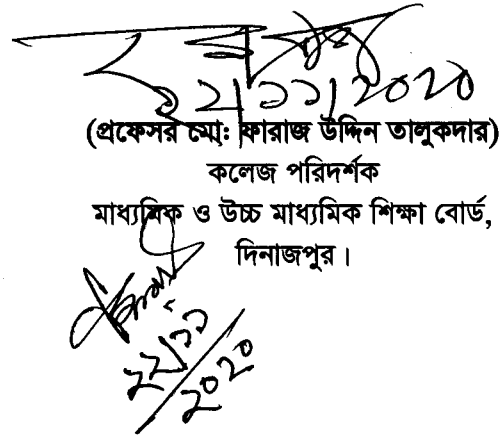 ২২/১১/২০২০
(প্রফেসর মো: ফারাজ উদ্দিন তালুকদার)
কলেজ পরিদর্শক
মাধ্যমিক ও উচ্চ মাধ্যমিক শিক্ষা বোর্ড,
দিনাজপুর।
২২/১১
২০২০